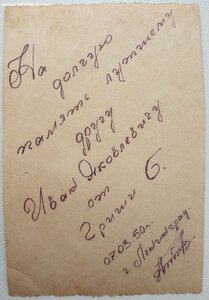 На
долгую
память лутшему
другу
Ивану Яковлевичу
от
Гриши Б.
07.03.50г.
г. Ленинград.